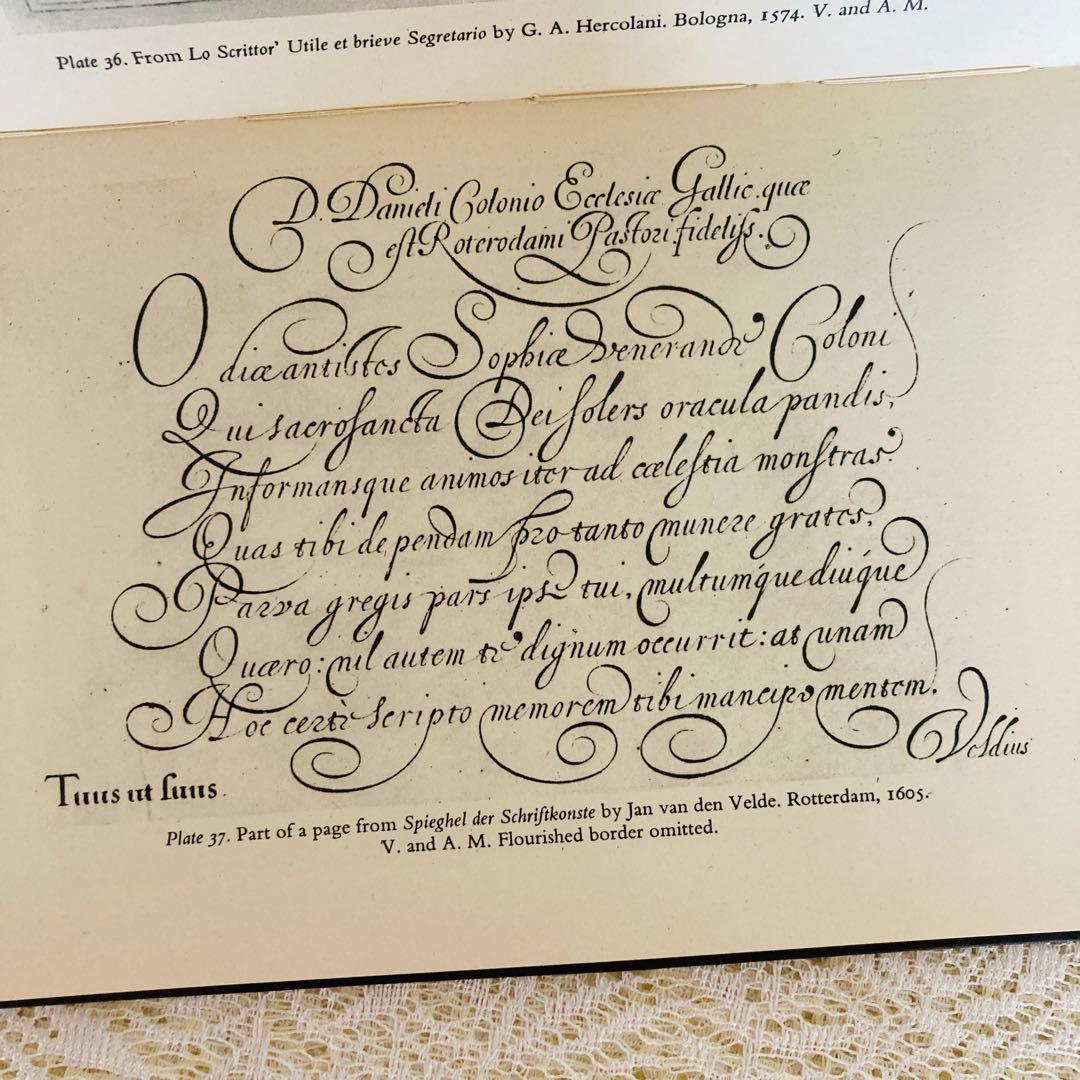 Plate 36. From Lo Scrittor' Utile et brieve Segretario by G. A. Hercolani. Bologna, 1574. V. and A. M.
D. Danieli Colonio Ecclesiæ Gallic. quæ
est Roterodami Pastori fideliſs.
O diæ antistes Sophiæ venerandè Coloni
Qui sacroſancta Dei ſolers oracula pandis,
Informansque animos iter ad cæleſtia monſtras.
Quas tibi dependam pro tanto munere grates,
Parva gregis pars ipse tui, multumque diúque
Quæro: nil autem te dignum occurrit: at unam
Hoc certè scripto memorem tibi mancipo mentem.
Veldius
Tuus ut ſuus.
Plate 37. Part of a page from Spieghel der Schriftkonste by Jan van den Velde. Rotterdam, 1605.
V. and A. M. Flourished border omitted.